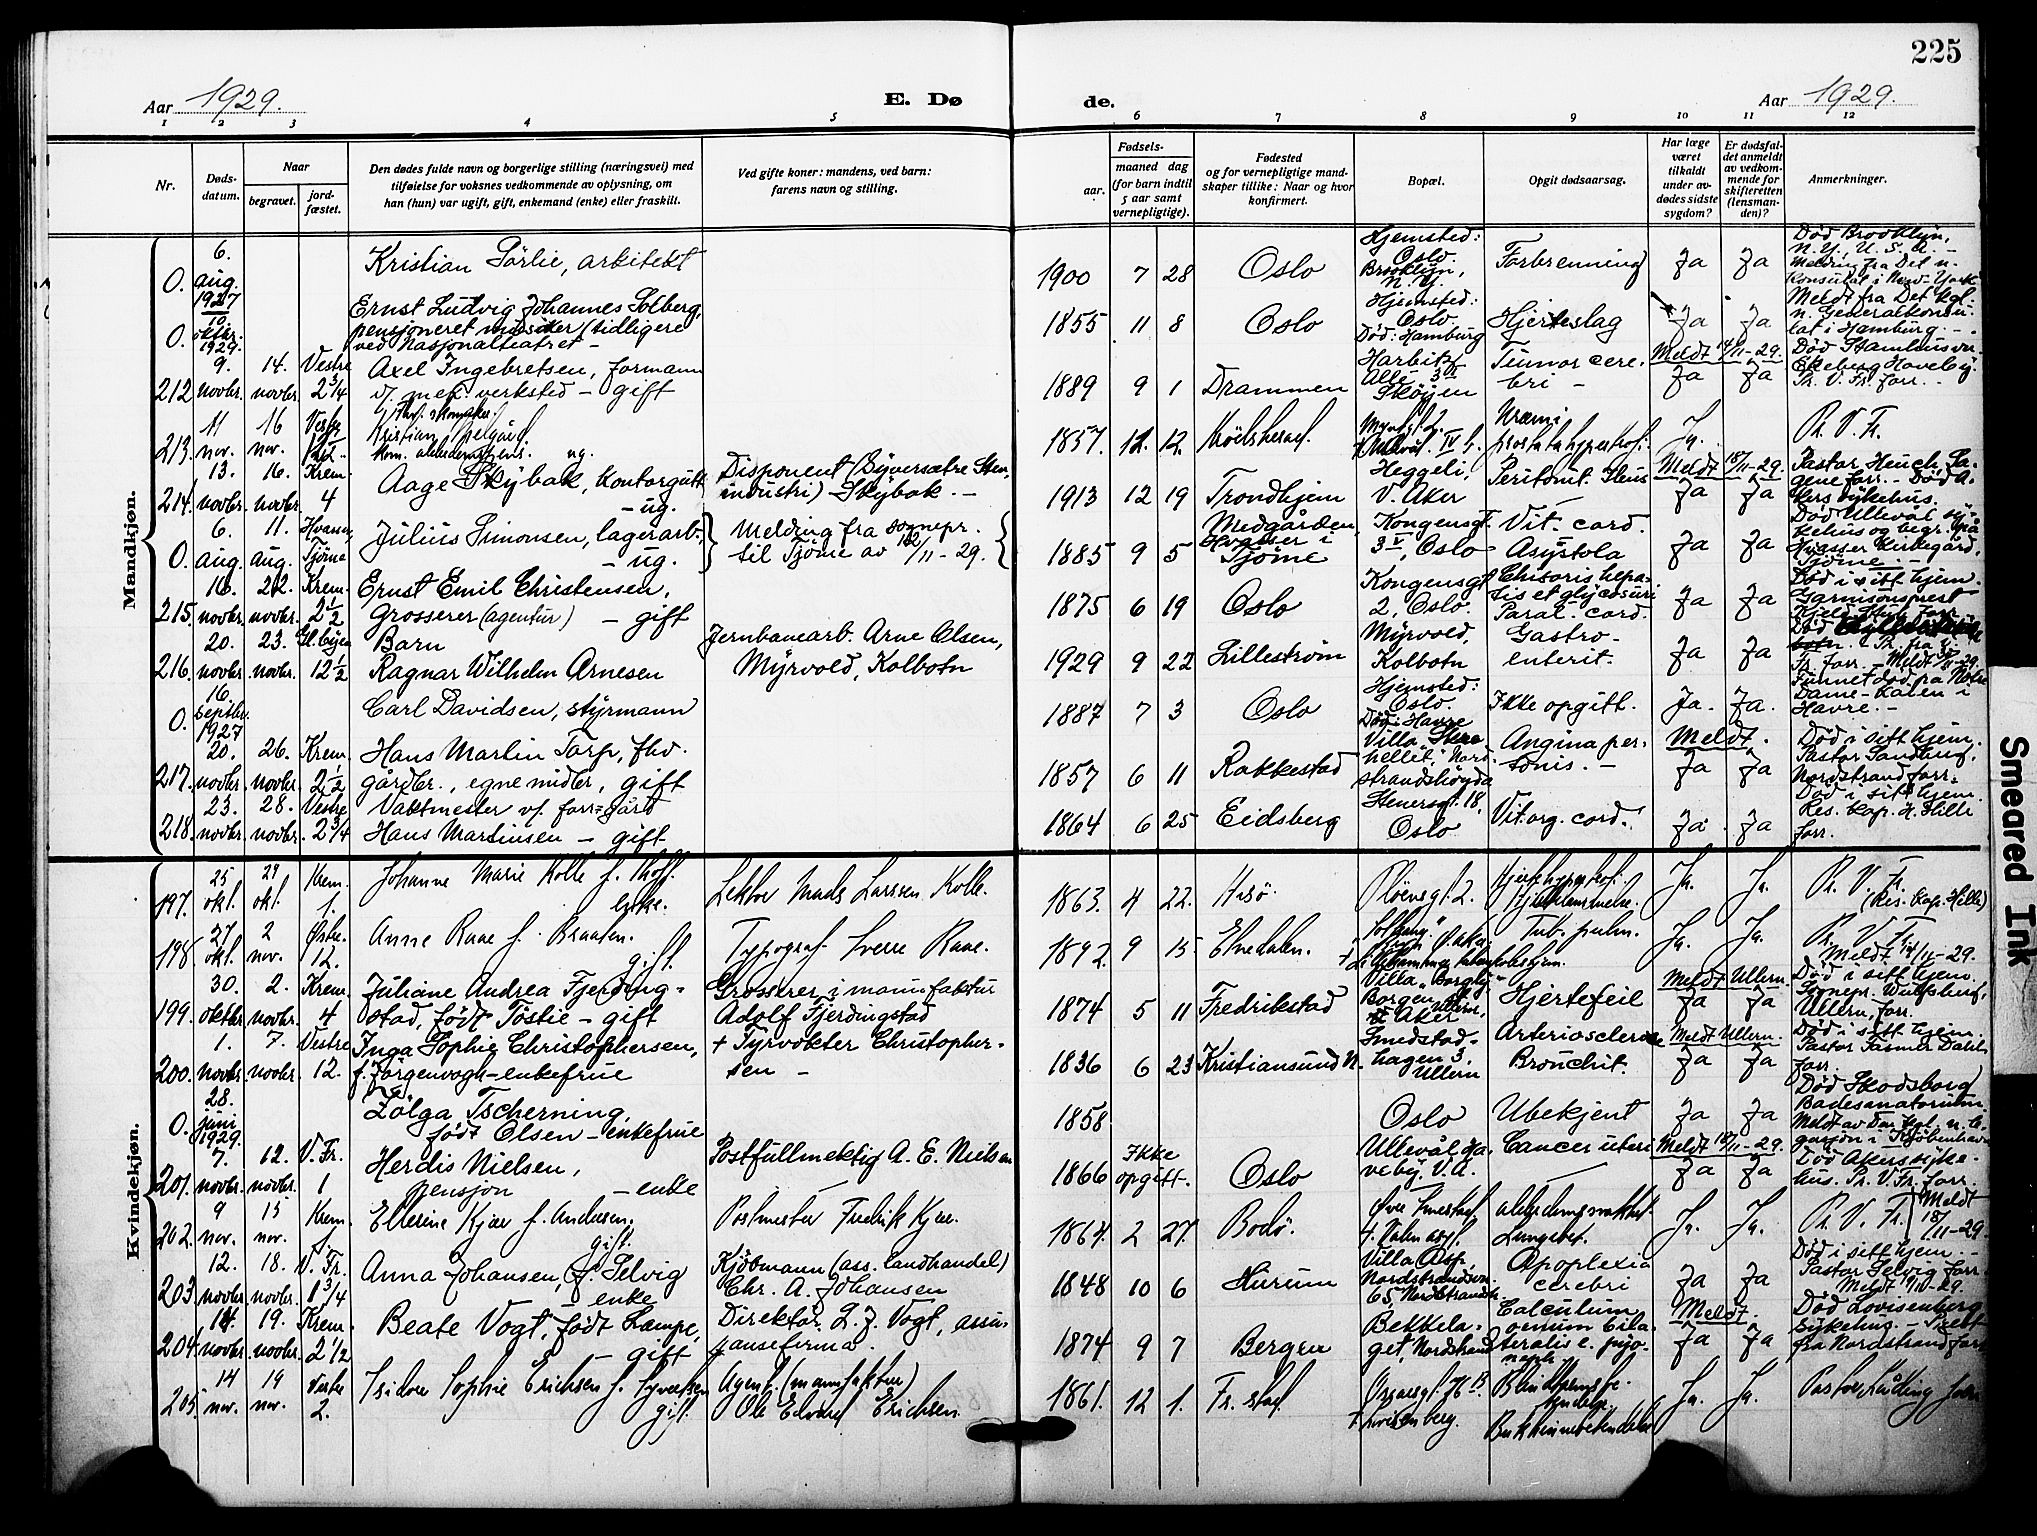 225
Aar 1929.
E. Dø
de.
Aar 1929.
1 2 3 4 5 6 7 8 9 10 11 12
Nr.
Døds-
datum.
Naar
begravet.
jord-
fæstet.
Den dødes fulde navn og borgerlige stilling (næringsvei) med
tilføielse for voksnes vedkommende av oplysning, om
han (hun) var ugift, gift, enkemand (enke) eller fraskilt.
Ved gifte koner: mandens, ved barn:
farens navn og stilling.
Fødsels-
aar.
maaned dag
(for barn indtil
5 aar samt
vernepligtige).
Fødested
og for vernepligtige mand-
skaper tillike: Naar og hvor
konfirmert.
Bopæl.
Opgit dødsaarsag.
Har læge
været
tilkaldt
under av-
dødes sidste
sygdom?
Er dødsfal-
det anmeldt
av vedkom-
mende for
skifteretten
(lensman-
den)?
Anmerkninger.
Mandkjøn.
0. 6. aug. 1927
Kristian Sørlie, arkitekt
1900 7 28 Oslo
Hjemsted:
Oslo.
Brooklyn,
N.Y.
Forbrenning Ja Ja
Død Brooklyn,
N.Y., U.S.A. –
Meldin fra Det n.
Konsulat i New-York
0. 10 oktbr. 1929.
Ernst Ludvig Johannes Solberg,
pensjoneret musiker (tidligere
ved Nasjonalteatret –
1855 11 8 Oslo
Hjemsted:
Oslo.
Død: Hamburg
Hjerteslag Ja Ja
Meldt fra Det kgl.
n. Generalkonsu-
lat i Hamburg. –
212 9. novbr. 14. novbr. Vestre 2 3/4
Axel Ingebretsen, formann
v/ mek. verksted – gift
1889 9 1 Drammen
Harbitz
Alle 3
Skøyen
Tumor cere-
bri –
Meldt 14/11-29.
Ja Ja
Ekeberg Haveby.
Pr. V. Fr. forr. –
213. 11 nov. 16 nov.
Kristian
ug.
1857. 12.
Uræmi
Ja.
Pr. V. Fr.
214. 13. novbr. 16. novbr. Krem. 4
Aage Skybak, kontorgutt
– ug.
Disponent (Byversætre Sten-
industri) Skybak. –
1913 12 19 Trondhjem
Heggeli,
V. Aker
Peritonit. Ileus
Meldt 18/11-29.
Ja Ja
Død A-
kers sykehus.
0. 6. aug. 11. aug. Hvasser, Tjøme
Julius Simonsen, lagerarb.,
– ug.
Melding fra sognepr.
til Tjøme av 12/11-29.
1885 9 5
Medgården,
Hvasser i
Tjøme
Kongensgt.
3 V, Oslo
Vit. cord.
Asystola
Ja Ja
Død Ullevål sy-
kehus og begr. på
Hvasser Kirkegård,
Tjøme –
215. 16. novbr. 22. novbr. Krem. 2 1/2
Ernst Emil Christensen,
grosserer (agentur) – gift
1875 6 19 Oslo
Kongensgt
2, Oslo.
Paral. cord.
Ja Ja
Død i sitt hjem.
Garnisonsprest
216. 20. novbr. 23. novbr. 12 1/2
Barn
Ragnar Wilhelm Arnesen
Jernbanearb. Arne Olsen,
Myrvold, Kolbotn
1929 9 22 Lillestrøm
Myrvold,
Kolbotn
Gastro-
enterit.
Ja Ja
Død
0. 16. septbr. 1927
Carl Davidsen, styrmann
1887 7 3 Oslo
Hjemsted:
Oslo.
Død: Havre
Ikke opgitt. Ja. Ja.
Funnet død fra Notre
Dame-kaien i
Havre. –
217. 20. novbr. 26. novbr. Krem. 2 1/2
Hans Martin Torp, fhv.
gårdbr., egne midler, gift
1857 6 11 Rakkestad
Villa "Stene
hellet", Nord-
strandshøgda
Angina pec-
toris. –
Meldt.
Ja Ja
Død i sitt hjem.
Pastor Sandberg,
Nordstrand forr.
218. 23. novbr. 28. novbr. Vestre 2 3/4
Vaktmester v/ forr=gård
Hans Martinsen – gift
1864 6 25 Eidsberg
Stenersgt. 18,
Oslo
Vit. org. cord. Ja Ja
Død i sitt hjem.
Res. kap. H. Hille
forr.
Kvindekjøn.
197. 25 okt. 29 okt. Krem. 1.
Johanne Marie Kolle f. Thoff.
Enke.
Lektor Mads Larssen Kolle.
1863. 4 22. Hisø
Pløensgt. 2. Ja. Ja.
Pr. V. Fr.
(Res. kap. Hille)
198 27 okt. 2 nov. Østre 12.
Anne Raae f. Braaten.
gift.
Typograf Sverre Raae.
1892. 9 15 Elvedalen.
Tub. pulm.
Ja. Ja.
Pr. V. Fr.
Meldt 14/11-29.
199. 30. oktbr. 2. novbr. Krem. 4
Juliane Andrea Fjerding=
stad, født Tostie – gift
Grosserer i manufaktur
Adolf Fjerdingstad
1874 5 11 Fredrikstad
Villa "Borgly"
Borgen, Ullern,
V. Aker
Hjertefeil
Meldt Ullern.
Ja Ja
Død i sitt hjem.
Sognepr. Wulfsberg,
Ullern, forr.
200. 1. novbr. 7. novbr. Vestre 12.
Inga Sophie Christophersen,
f. Jørgenvogh – enkefrue
+ Fyrvokter Christopher-
sen –
1836 6 23 Kristiansund N.
Smedstad-
hagen 3.
Ullern
Arteriosclerose
Bronchit.
Meldt Ullern.
Ja Ja
Død i sitt hjem.
Pastor Fasmer Dahl
forr.
0. 28. juni 1929.
Zølga Tscherning,
født Olsen – enkefrue
1858 Oslo Ubekjent Ja Ja
Død Skodsborg
Badesanatorium.
Meldt av Den kgl. n. le-
gasjon i Kjøbenhavn
201. 7. novbr. 12. novbr. V. Fr. 1
Herdis Nielsen,
pensjon – enke
Postfullmektig A. E. Nielsen
1866 Ikke opgitt. Oslo
Ullevål Ha-
veby. V. A.
Cancer uteri
Meldt 18/11-29.
Ja Ja
Død Akers syke-
hus. Pr. V. Fr. forr.
202. 9 nov. 15 nov. Krem. 1.
Ellerine Kjær f. Andersen.
gift.
Postmester Fredrik Kjær.
1864. 2 27. Bodø.
Lungebet.
Ja. Ja.
Pr. V. Fr. Meldt 18/11-29
203 12. novbr. 18. novbr. V. Fr. 1 3/4
Anna Johansen, f. Selvig
enke
Kjøbmann (ass. landhandel)
Chr. A. Johansen
1848 10 6 Hurum
Villa Asp,
Nordstrandsvn.
65, Nordstrandsh.
Apoplexia
cerebri
Ja Ja
Død i sitt hjem. –
Pastor Selvig forr.
Meldt 19/11-29.
204 14. novbr. 19. novbr. Krem. 2 1/2
Beate Vogt, født Lampe,
– gift
Direktør L. J. Vogt, assu-
ransefirma.
1874 9 7 Bergen
Bekkela-
get, Nordstrand
Calculum
Meldt.
Ja Ja
Død Lovisenberg
sykehus –
fra Nordstrand forr.
205 14 nov. 19 nov. Vestre 2.
Isidore Sophie Erichsen f. Syvertsen
gift.
Agent. (manufaktur)
Ole Edvard Erichsen.
1861. 12 1. Fr. stad
Lovisenberg.
Bukhinnebetendelse
Ja. Ja.
Smeared Ink